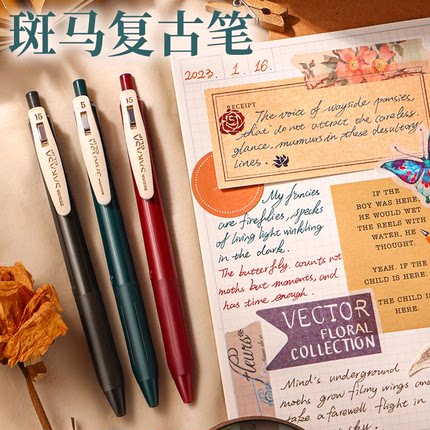 斑马复古笔
2023. 1. 16.
RECEIPT
The voice of wayside pansies,
that do not attract the careless
glance, murmurs in these desultory
lines.
My fancies
are fireflies, specks
of living light twinkling
in the dark.
The butterfly counts not
moths but moments, and
has time enough.
IF THE
BOY WAS HERE,
HE WOULD WET
THE REELS WITH
WATER, HE
THOUGHT.
YEAH. IF THE
CHILD IS HERE.
THE CHILD IS
HERE.
VECTOR
FLORAL
COLLECTION
fleuris
Mind's underground
moths grow filmy wings and
take a farewell flight in
sky.
15
5
15